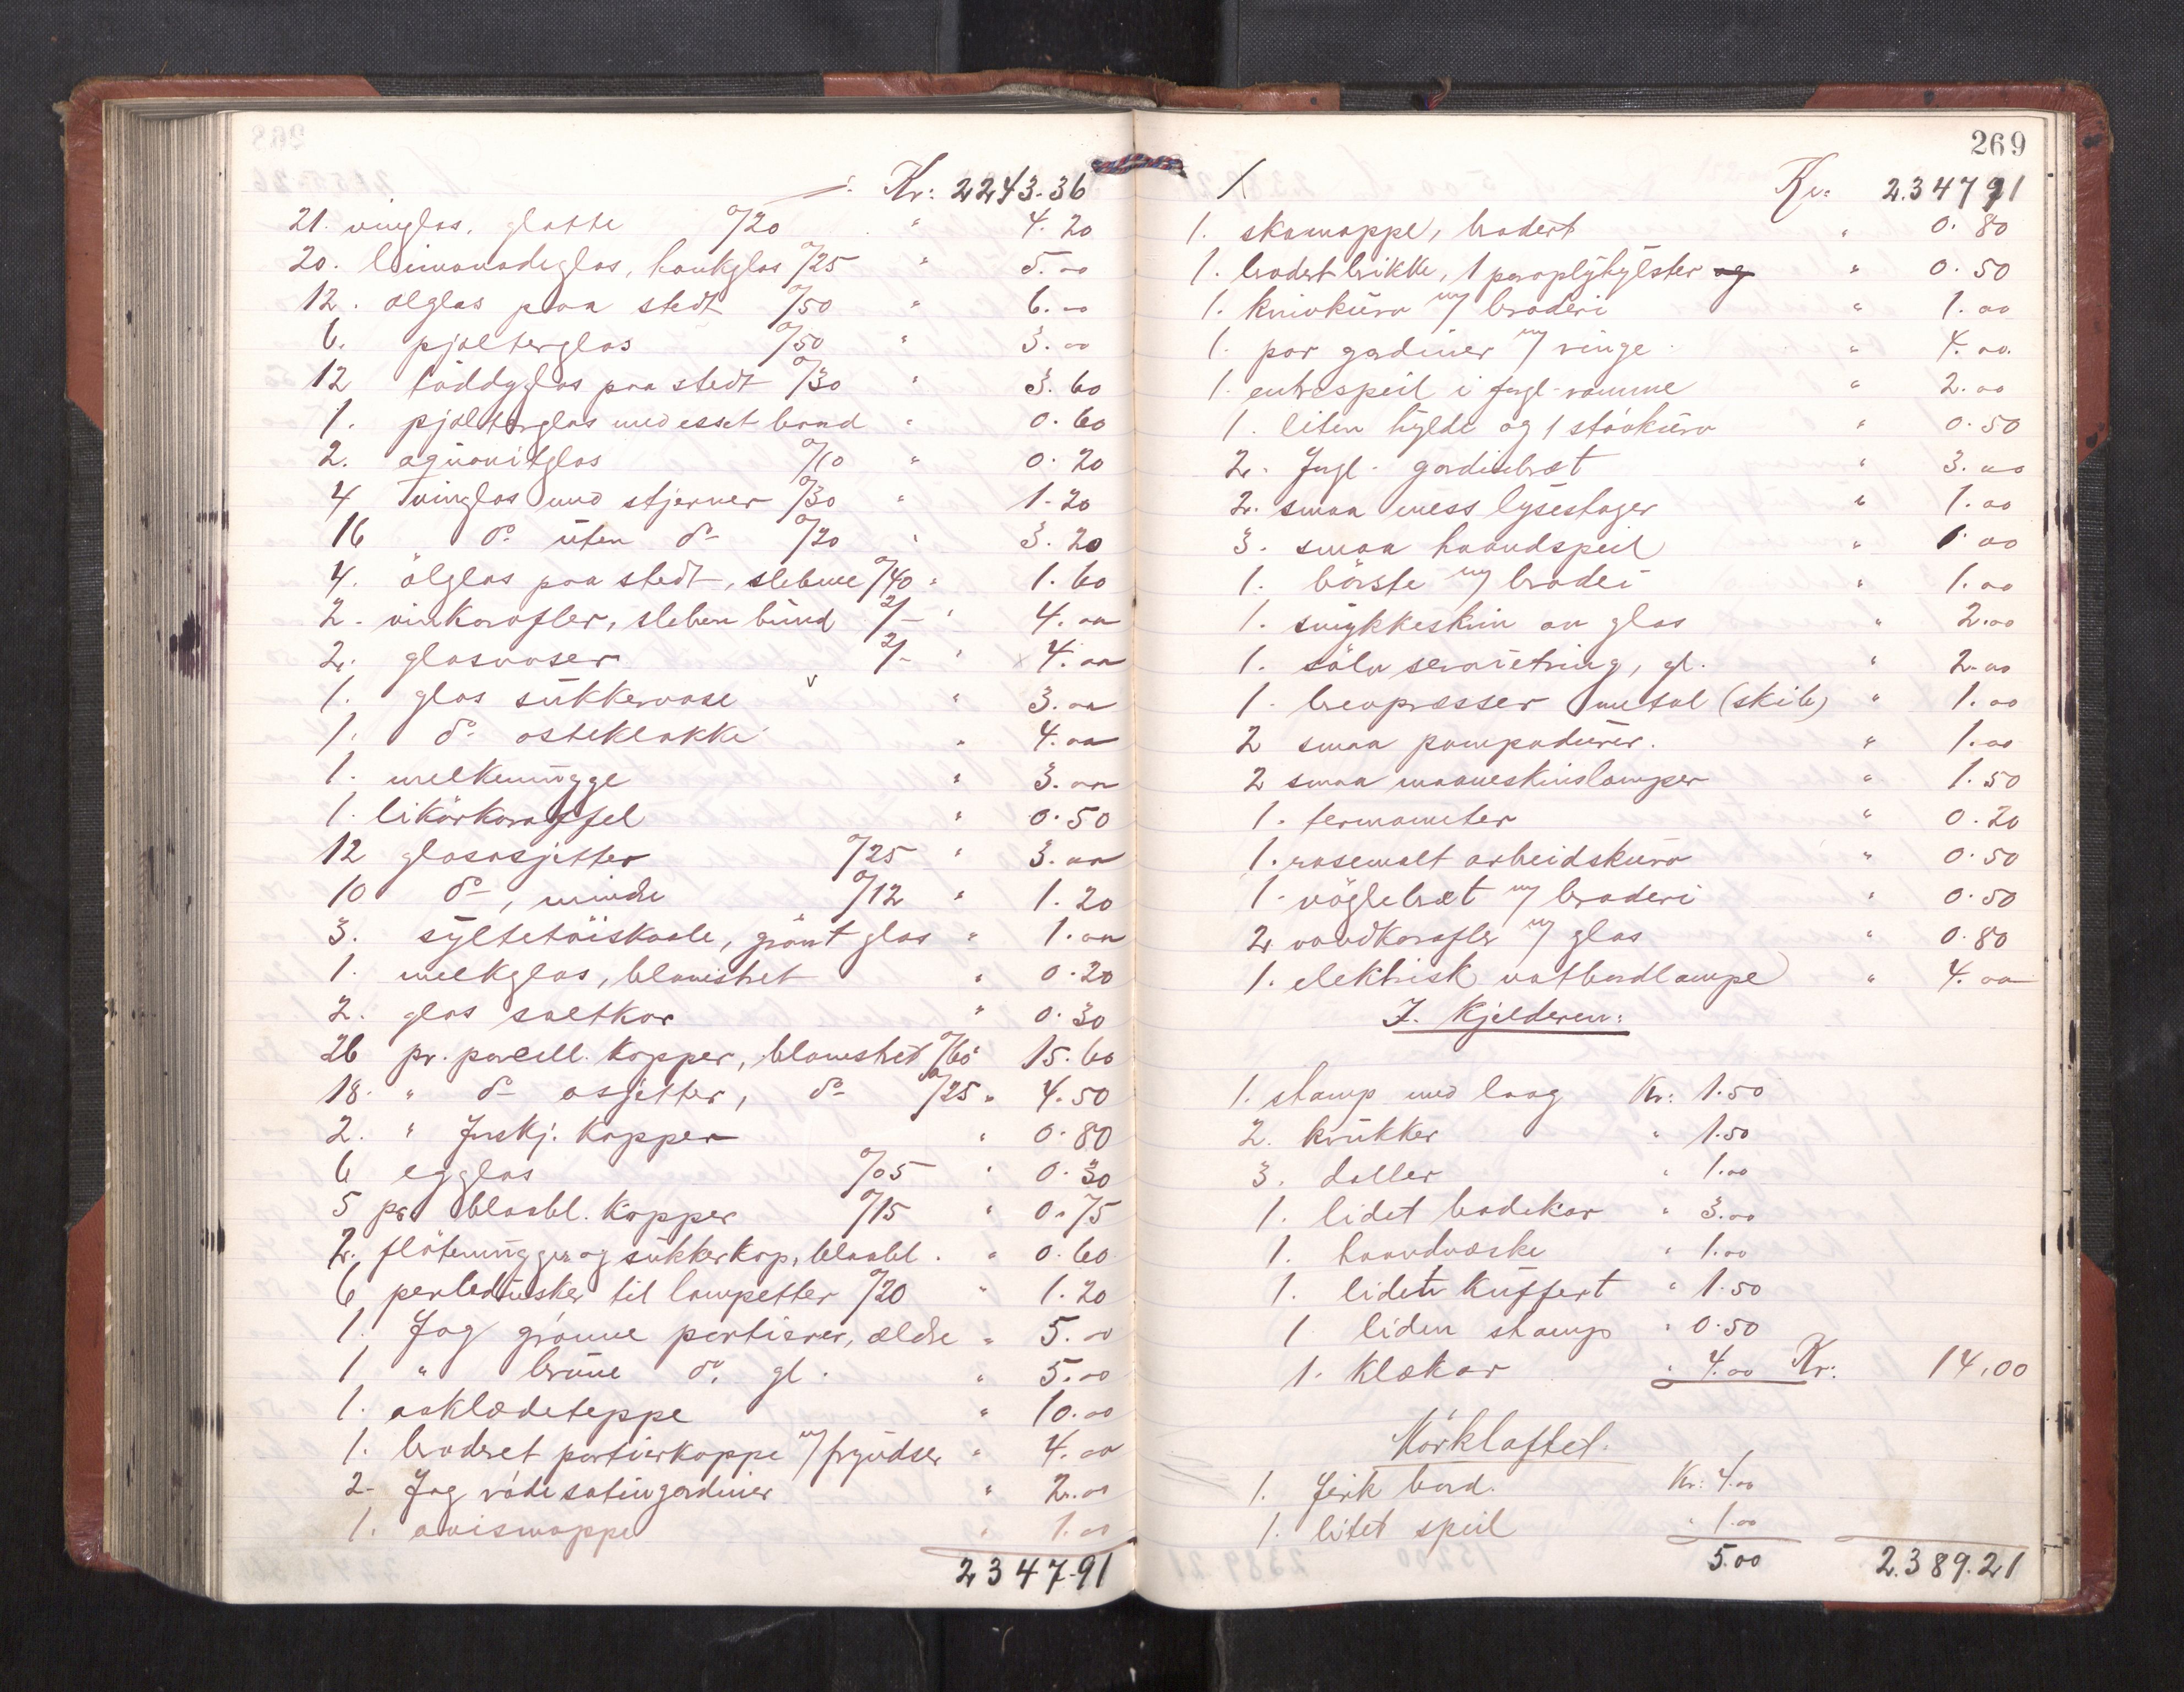 Kr: 2243.36
21. vinglas, glatte %20 " 4.20
20. limonadeglas, hankglas %25 " 5.00
12. ølglas paa stedt %50 " 6.00
6. pjolterglas %50 " 3.00
12 toddyglas paa stedt %30 " 3.60
1. pjolterglas med esset baand " 0.60
2. aquavitglas %10 " 0.20
4 vinglas med stjerner %30 " 1.20
16 do uten do %20 " 3.20
4. ölglas paa stedt, slebne %40 " 1.60
2. vinkarafler, sleben bund 2/- " 4.00
2. glasvaser 2/- " 4.00
1. glas sukkervase " 3.00
1. do osteklokke " 4.00
1. melkemugge " 3.00
1. likörkaraffel " 0.50
12 glasasjetter %25 " 3.00
10 do, mindre %12 " 1.20
3. syltetöiskaale, grönt glas " 1.00
1. melkglas, blomstret " 0.20
2. glas saltkar " 0.30
26 pr. porcell. kopper, blomstret %60 15.60
18. " do asjetter, do %25 " 4.50
2. " forskj. kopper " 0.80
6 egglas %05 " 0.30
5 pr blaabl. kopper %15 " 0.75
2. flötemugger og sukkerkop, blaabl. " 0.60
6 perledusker til lampetter %20 " 1.20
1. Fag grönne portierer, ældre " 5.00
1 " brune do gl. " 5.00
1. askladeteppe " 10.00
1. broderet portierkappe m/ fryndser " 4.00
2. Fag röde satingardiner " 2.00
1. avismappe " 1.00
2347.91
269
Kr. 2347 91
1. skomappe, brodert " 0.80
1. brodert brikke, 1 paraplyhylster og " 0.50
1. knivkurv m/ broderi " 1.00
1. par gardiner m/ ringe " 4.00
1. entrespeil i fugl-ramme " 2.00
1. liten hylde og 1 stövkurv " 0.50
2. Fugl. gardinbræt " 3.00
2. smaa mess lysestager " 1.00
3. smaa haandspeil " 1.00
1. börste m/ broderi " 1.00
1. smykkeskrin av glas " 2.00
1. sölv serviettring, gl. " 2.00
1. brevpresser metal (skib) " 1.00
2 smaa pompadurer. " 1.00
2 smaa maaneskinslamper " 1.50
1. termometer " 0.20
1. rosemalt arbeidskurv " 0.50
1. nöglebræt m/ broderi " 0.50
2 vandkarafler m/ glas " 0.80
1. elektrisk natbordlampe " 4.00
I. Kjelderen:
1. stamp med laag Kr: 1.50
2. krukker " 1.50
3. daller " 1.00
1. lidet badekar " 3.00
1. haandvæske " 1.00
1. liden kuffert " 1.50
1 liden stamp " 0.50
1. klækar " 4.00 Kr: 14.00
Mörkloftet.
1. firk bord. Kr: 4.00
1. litet speil " 1.00
5.00 2.389.21